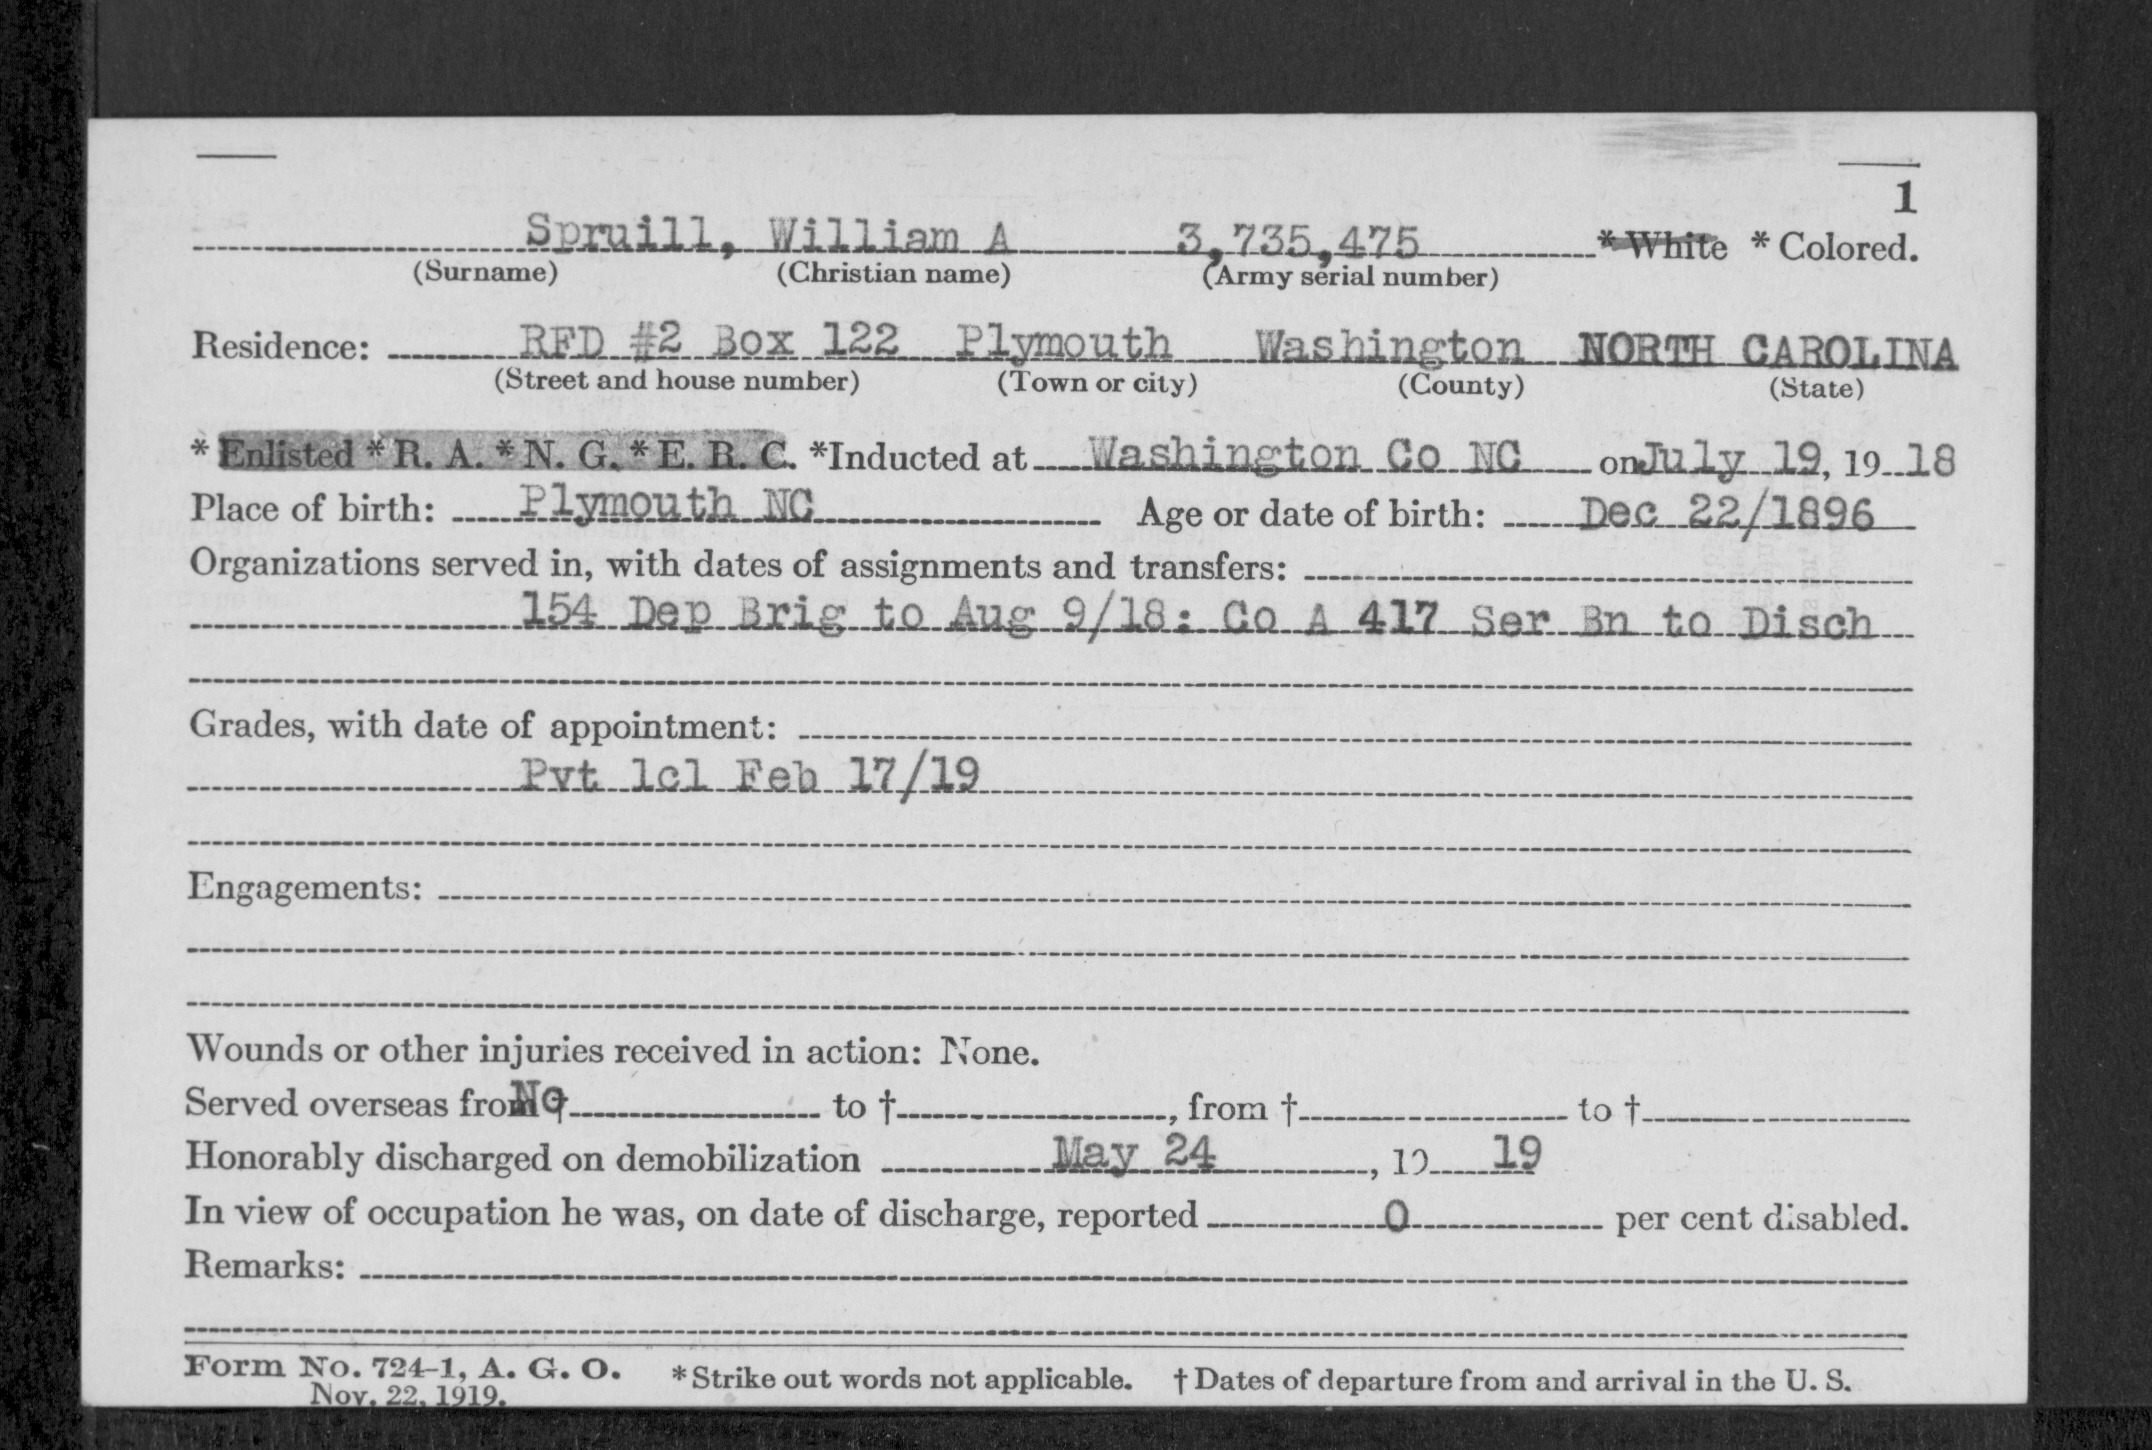 1
Spruill, William A 3,735,475 * White * Colored.
(Surname) (Christian name) (Army serial number)
Residence: RFD #2 Box 122 Plymouth Washington NORTH CAROLINA
(Street and house number) (Town or city) (County) (State)
* Enlisted * R. A. * N. G. * E. R. C. *Inducted at Washington Co NC on July 19, 19 18
Place of birth: Plymouth NC Age or date of birth: Dec 22/1896
Organizations served in, with dates of assignments and transfers:
154 Dep Brig to Aug 9/18: Co A 417 Ser Bn to Disch
Grades, with date of appointment:
Pvt 1cl Feb 17/19
Engagements:
Wounds or other injuries received in action: None.
Served overseas from † No to †, from † to †
Honorably discharged on demobilization May 24, 19 19
In view of occupation he was, on date of discharge, reported 0 per cent disabled.
Remarks:
Form No. 724-1, A. G. O. * Strike out words not applicable. † Dates of departure from and arrival in the U. S.
Nov. 22, 1919.